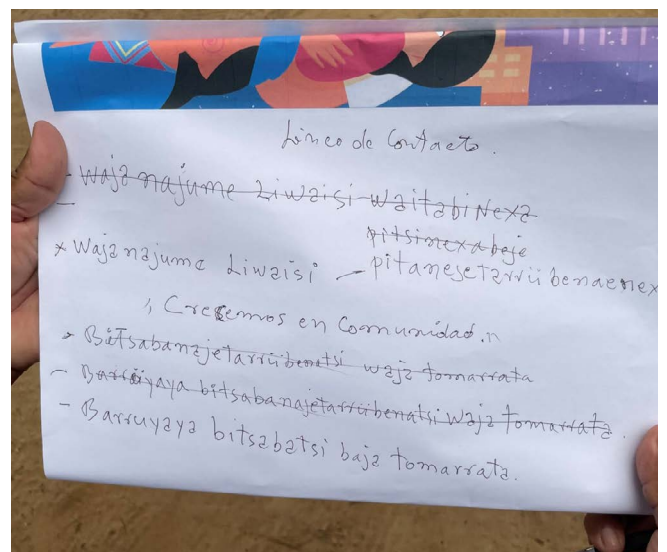 Línea de Contacto.
- Waja najume Liwaisi waitabinexa
-
pitsinexabeje
* Waja najume Liwaisi - pitanejetarrübenaenex
"Crecemos en Comunidad."
* Bitsabanajetarrübenatsi waja tomarrata
- Barrüyaya bitsabanajetarrübenatsi waja tomarrata.
- Barruyaya bitsabatsi baja tomarrata.